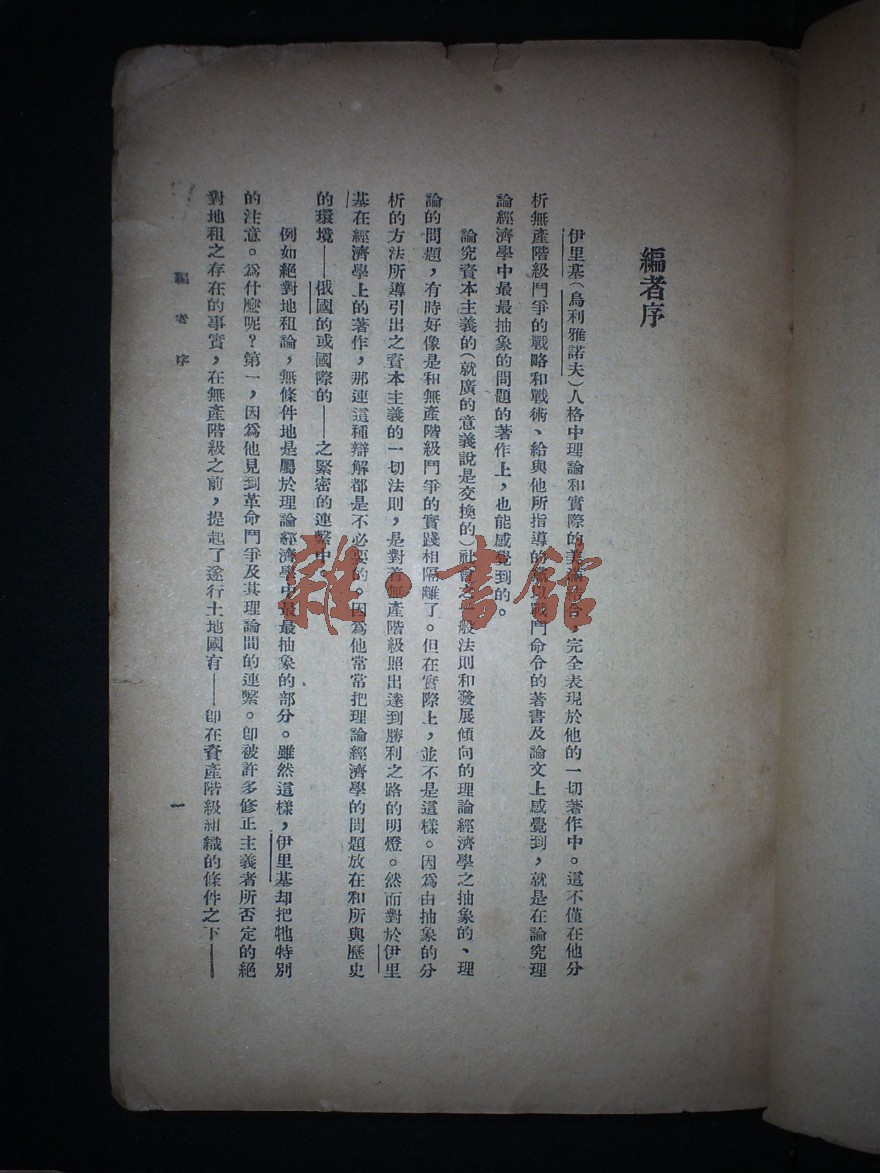 編者序
伊里基(烏利雅諾夫)人格中理論和實際的美滿結合,完全表現於他的一切著作中。這不僅在他分
析無產階級鬥爭的戰略和戰術、給與他所指導的以戰鬥命令的著書及論文上感覺到,就是在論究理
論經濟學中最最抽象的問題的著作上,也能感覺到的。
論究資本主義的(就廣的意義說是交換的)社會之般法則和發展傾向的理論經濟學之抽象的、理
論的問題,有時好像是和無產階級鬥爭的實踐相隔離了。但在實際上,並不是這樣。因爲由抽象的分
析的方法所導引出之資本主義的一切法則,是對着無產階級照出達到勝利之路的明燈。然而對於伊里
基在經濟學上的著作,那連這種辯解都是不必要的。因爲他常常把理論經濟學的問題放在和所與歷史
的環境——俄國的或國際的——之緊密的連繫中。
例如絕對地租論,無條件地是屬於理論經濟學中最最抽象的部分。雖然這樣,伊里基却把牠特別
的注意。爲什麼呢?第一,因爲他見到革命鬥爭及其理論間的連繫。卽被許多修正主義者所否定的絕
對地租之存在的事實,在無產階級之前,提起了遂行土地國有——卽在資產階級組織的條件之下——
編者序
一
雜·書館